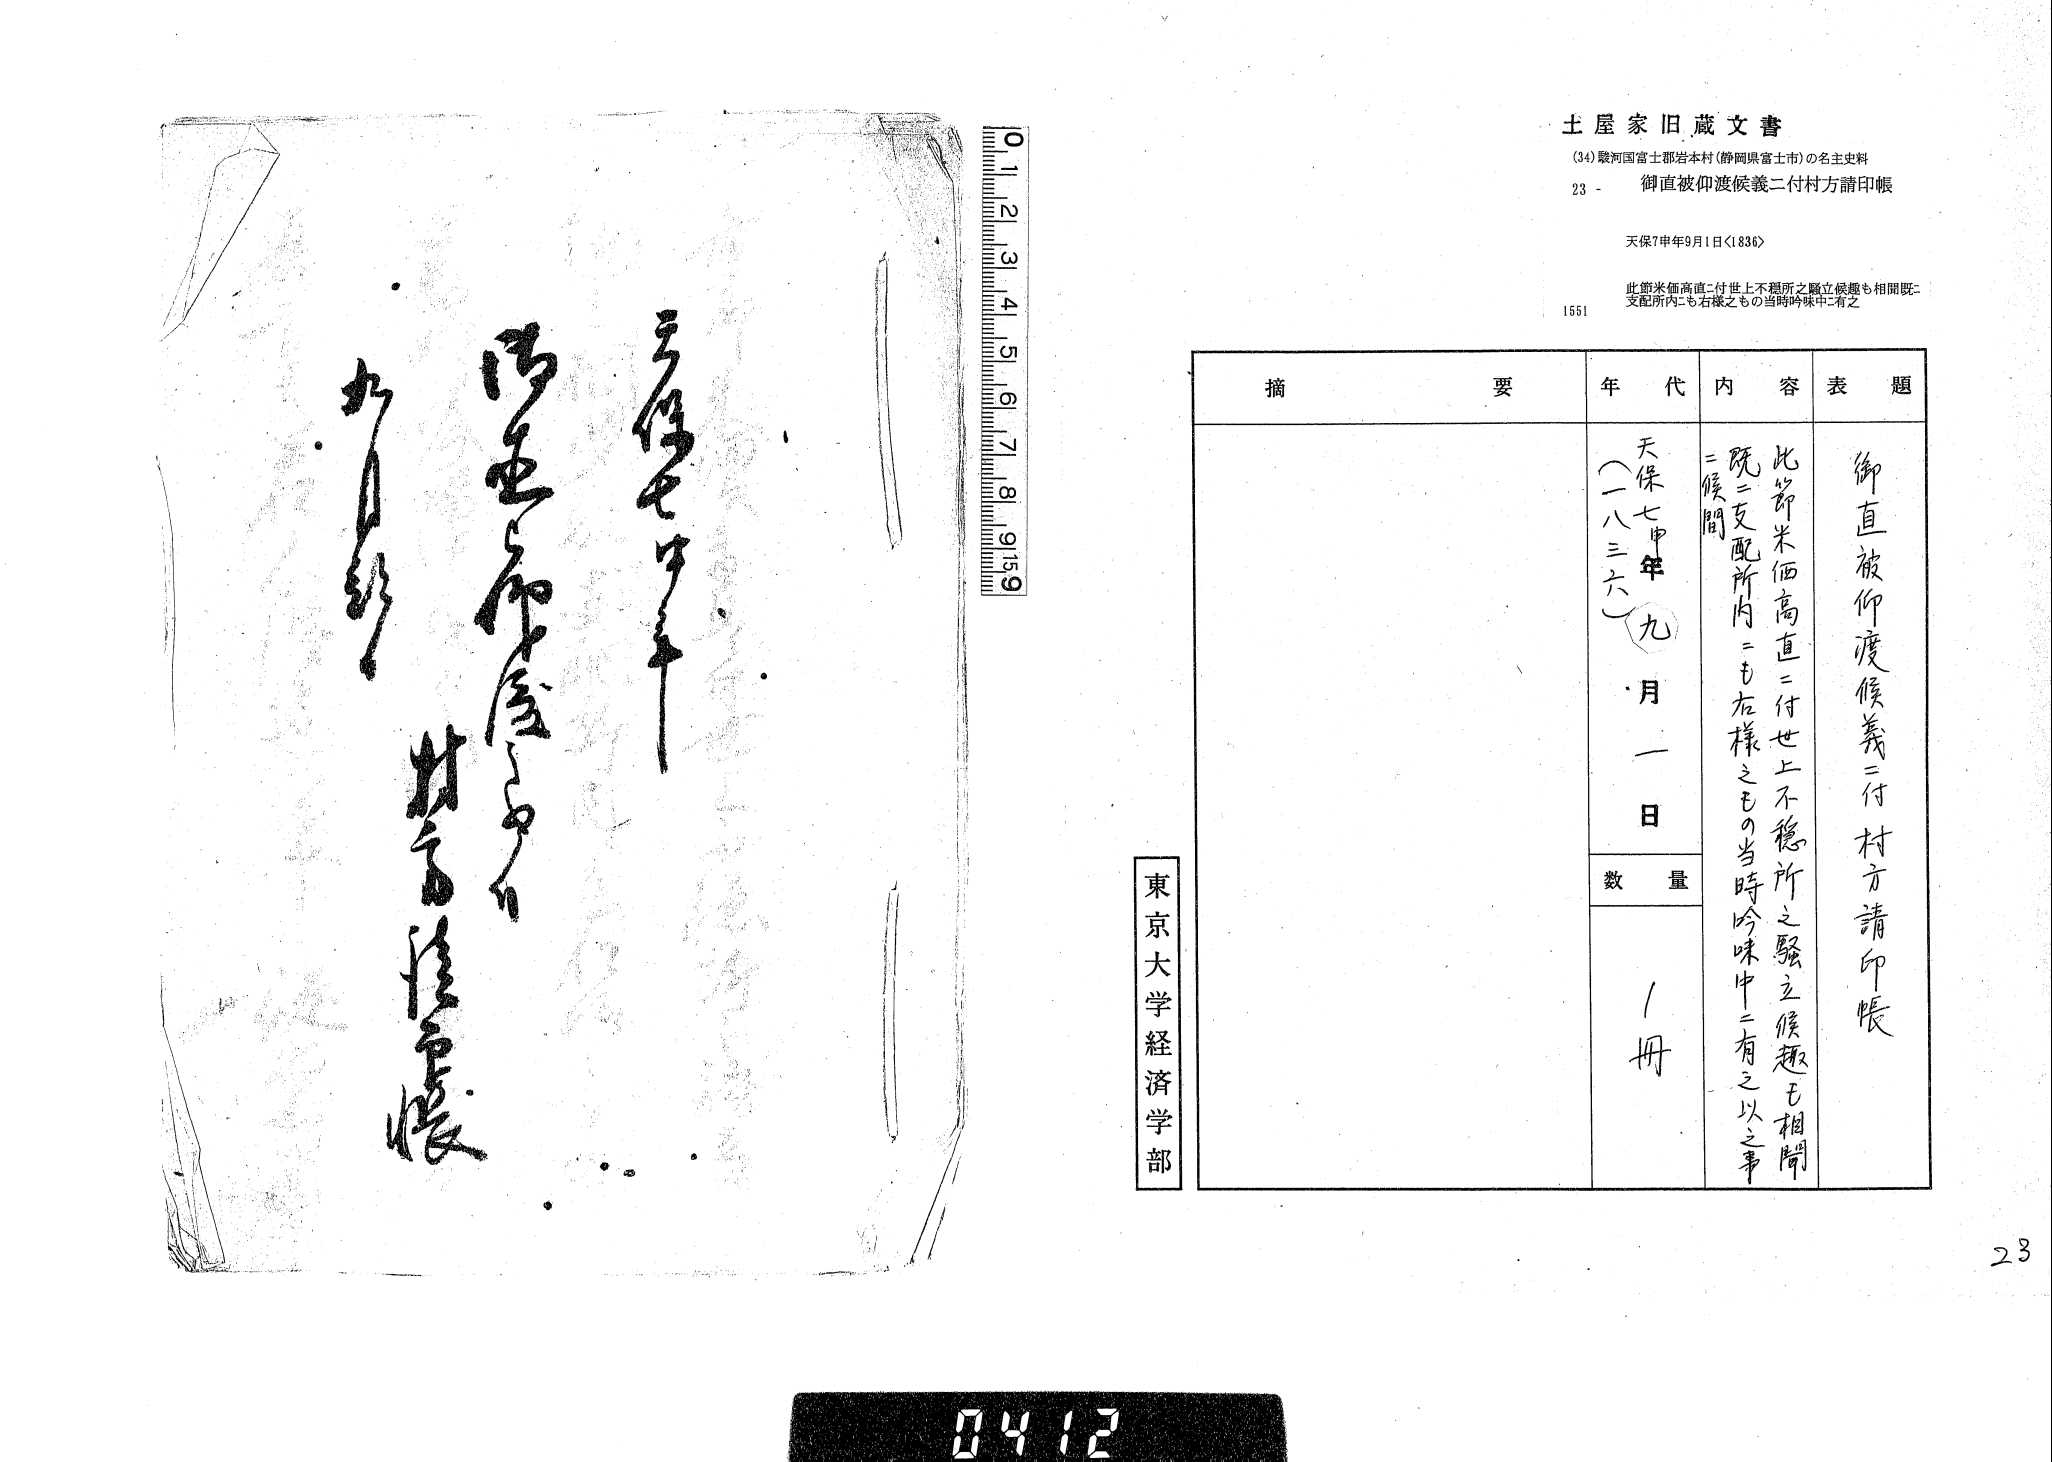 土屋家旧蔵文書
(34)駿河国富士郡岩本村(静岡県富士市)の名主史料
23 - 御直被仰渡候義ニ付村方請印帳
天保7申年9月1日<1836>
此節米価高直ニ付世上不穏所之騒立候趣も相聞既ニ
支配所内ニも右様之もの当時吟味中ニ有之
1551
表題
御直被仰渡候義ニ付村方請印帳
内容
此節米価高直ニ付世上不穏所之騒立候趣も相聞
既ニ支配所内ニも右様之もの当時吟味中ニ有之以之事
ニ候間
年代
天保七申年九月一日
(一八三六)
数量
1冊
摘要
東京大学経済学部
23
0 1 2 3 4 5 6 7 8 9 15 9
天保七申年
御直被仰渡候義ニ付
村方請印帳
九月朔日
0412